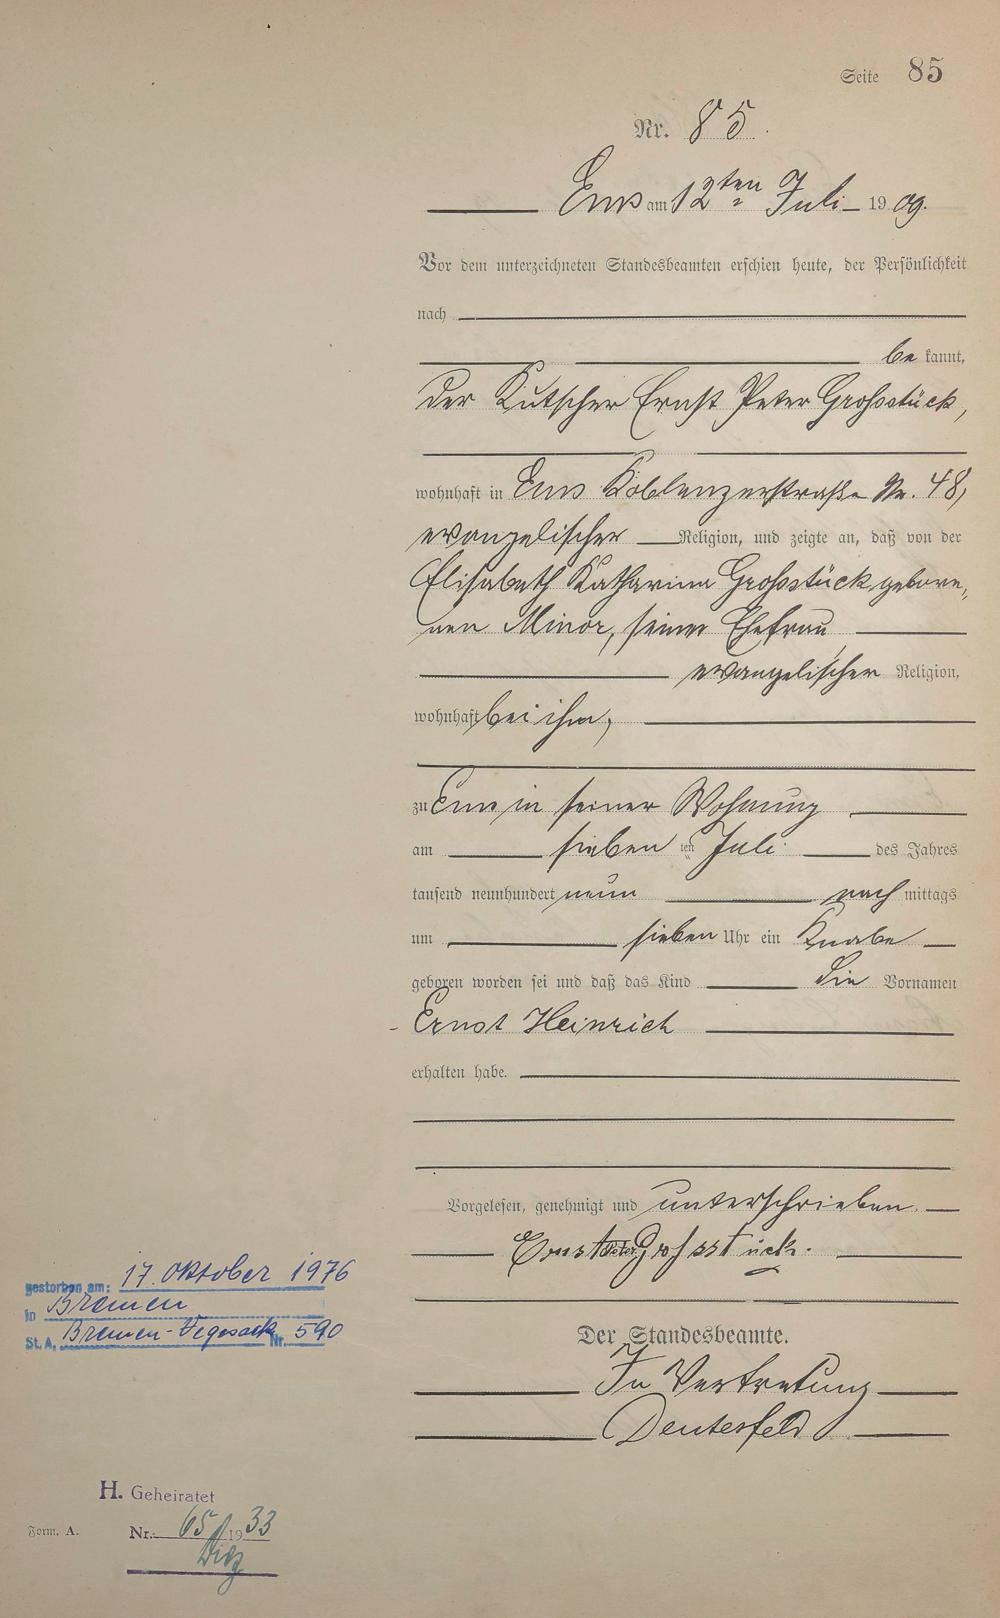 Seite 85
Nr. 85.
Ems am 12ten Juli 1909.
Vor dem unterzeichneten Standesbeamten erschien heute, der Persönlichkeit
nach
bekannt,
der Kutscher Ernst Peter Grossstück,
wohnhaft in Ems Koblenzerstraße Nr. 48,
evangelischer Religion, und zeigte an, daß von der
Elisabeth Katharina Grossstück gebore-
nen Minor, seiner Ehefrau
evangelischer Religion,
wohnhaft bei ihm,
zu Ems in seiner Wohnung
am siebenten Juli des Jahres
tausend neunhundert neun nachmittags
um sieben Uhr ein Knabe
geboren worden sei und daß das Kind die Vornamen
Ernst Heinrich
erhalten habe.
Vorgelesen, genehmigt und unterschrieben.
Ernst Peter Grossstück.
Der Standesbeamte.
In Vertretung
Deutesfeld
gestorben am: 17. Oktober 1976
in Bremen
St. A. Bremen-Vegesack Nr. 590
H. Geheiratet
Form. A. Nr. 65/1933
Diez